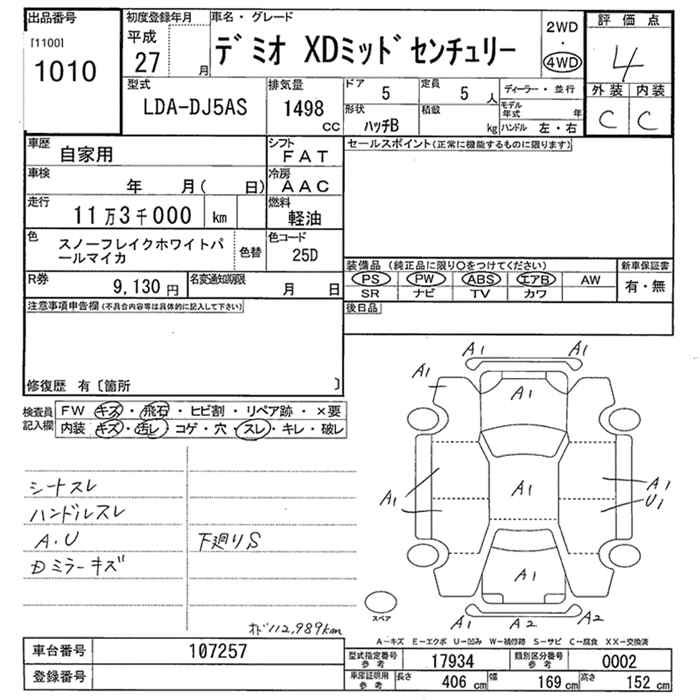 出品番号
[1100]
1010
初度登録年月
平成
27 月
車名・グレード
デミオ XDミッドセンチュリー
2WD
・
4WD
評価点
4
外装 内装
C C
型式
LDA-DJ5AS
排気量
1498
cc
ドア 5
定員 5 人
形状
ハッチB
積載
kg
ディーラー・並行
モデル年式 年
ハンドル 左・右
車歴 自家用
シフト
FAT
車検 年 月( 日)
冷房
AAC
走行 11万3千000 km
燃料
軽油
色 スノーフレイクホワイトパールマイカ
色替
色コード
25D
R券 9,130円
名変通知期限 月 日
セールスポイント(正常に機能するものに限ります)
装備品 (純正品に限り○をつけてください)
PS PW ABS エアB AW
SR ナビ TV カワ
新車保証書
有・無
後日品
注意事項申告欄(不具合内容等は具体的に記入して下さい)
修復歴 有〔箇所 〕
検査員記入欄
FW キズ・飛石・ヒビ割・リペア跡・×要
内装 キズ・汚レ・コゲ・穴・スレ・キレ・破レ
シートスレ
ハンドルスレ
A.U 下廻りS
Dミラーキズ
オド112,989km
A1 A1
A1 A1
A1 A1 A1
U1
A1
A1 A2 A2
スペア
A−キズ E−エクボ U−凹み W−補修跡 S−サビ C−腐食 XX−交換済
車台番号 107257
登録番号
型式指定番号参考 17934
類別区分番号参考 0002
車庫証明用参考 長さ 406 cm 幅 169 cm 高さ 152 cm